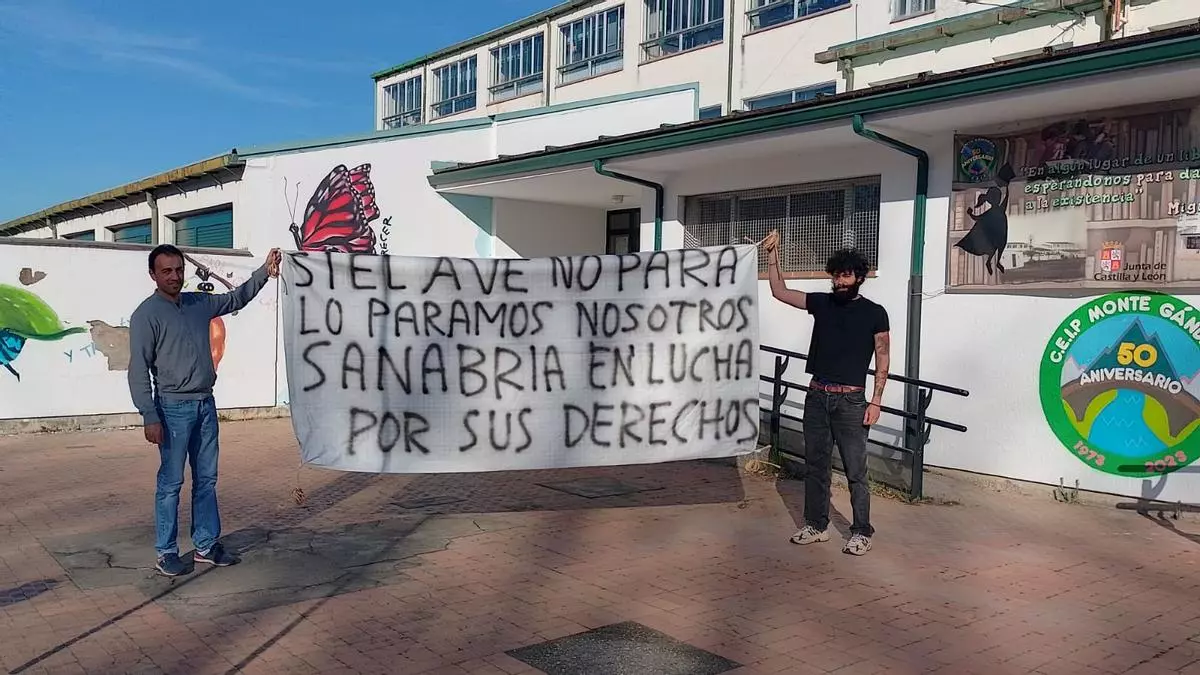 SI EL AVE NO PARA
LO PARAMOS NOSOTROS
SANABRIA EN LUCHA
POR SUS DERECHOS
RECER
Y
"En algún lugar de un lib
esperándonos para da
a la existencia"
Migu
50
ANIVERSARIO
Junta de
Castilla y León
C.E.I.P MONTE GÁND
50
ANIVERSARIO
1973 2023